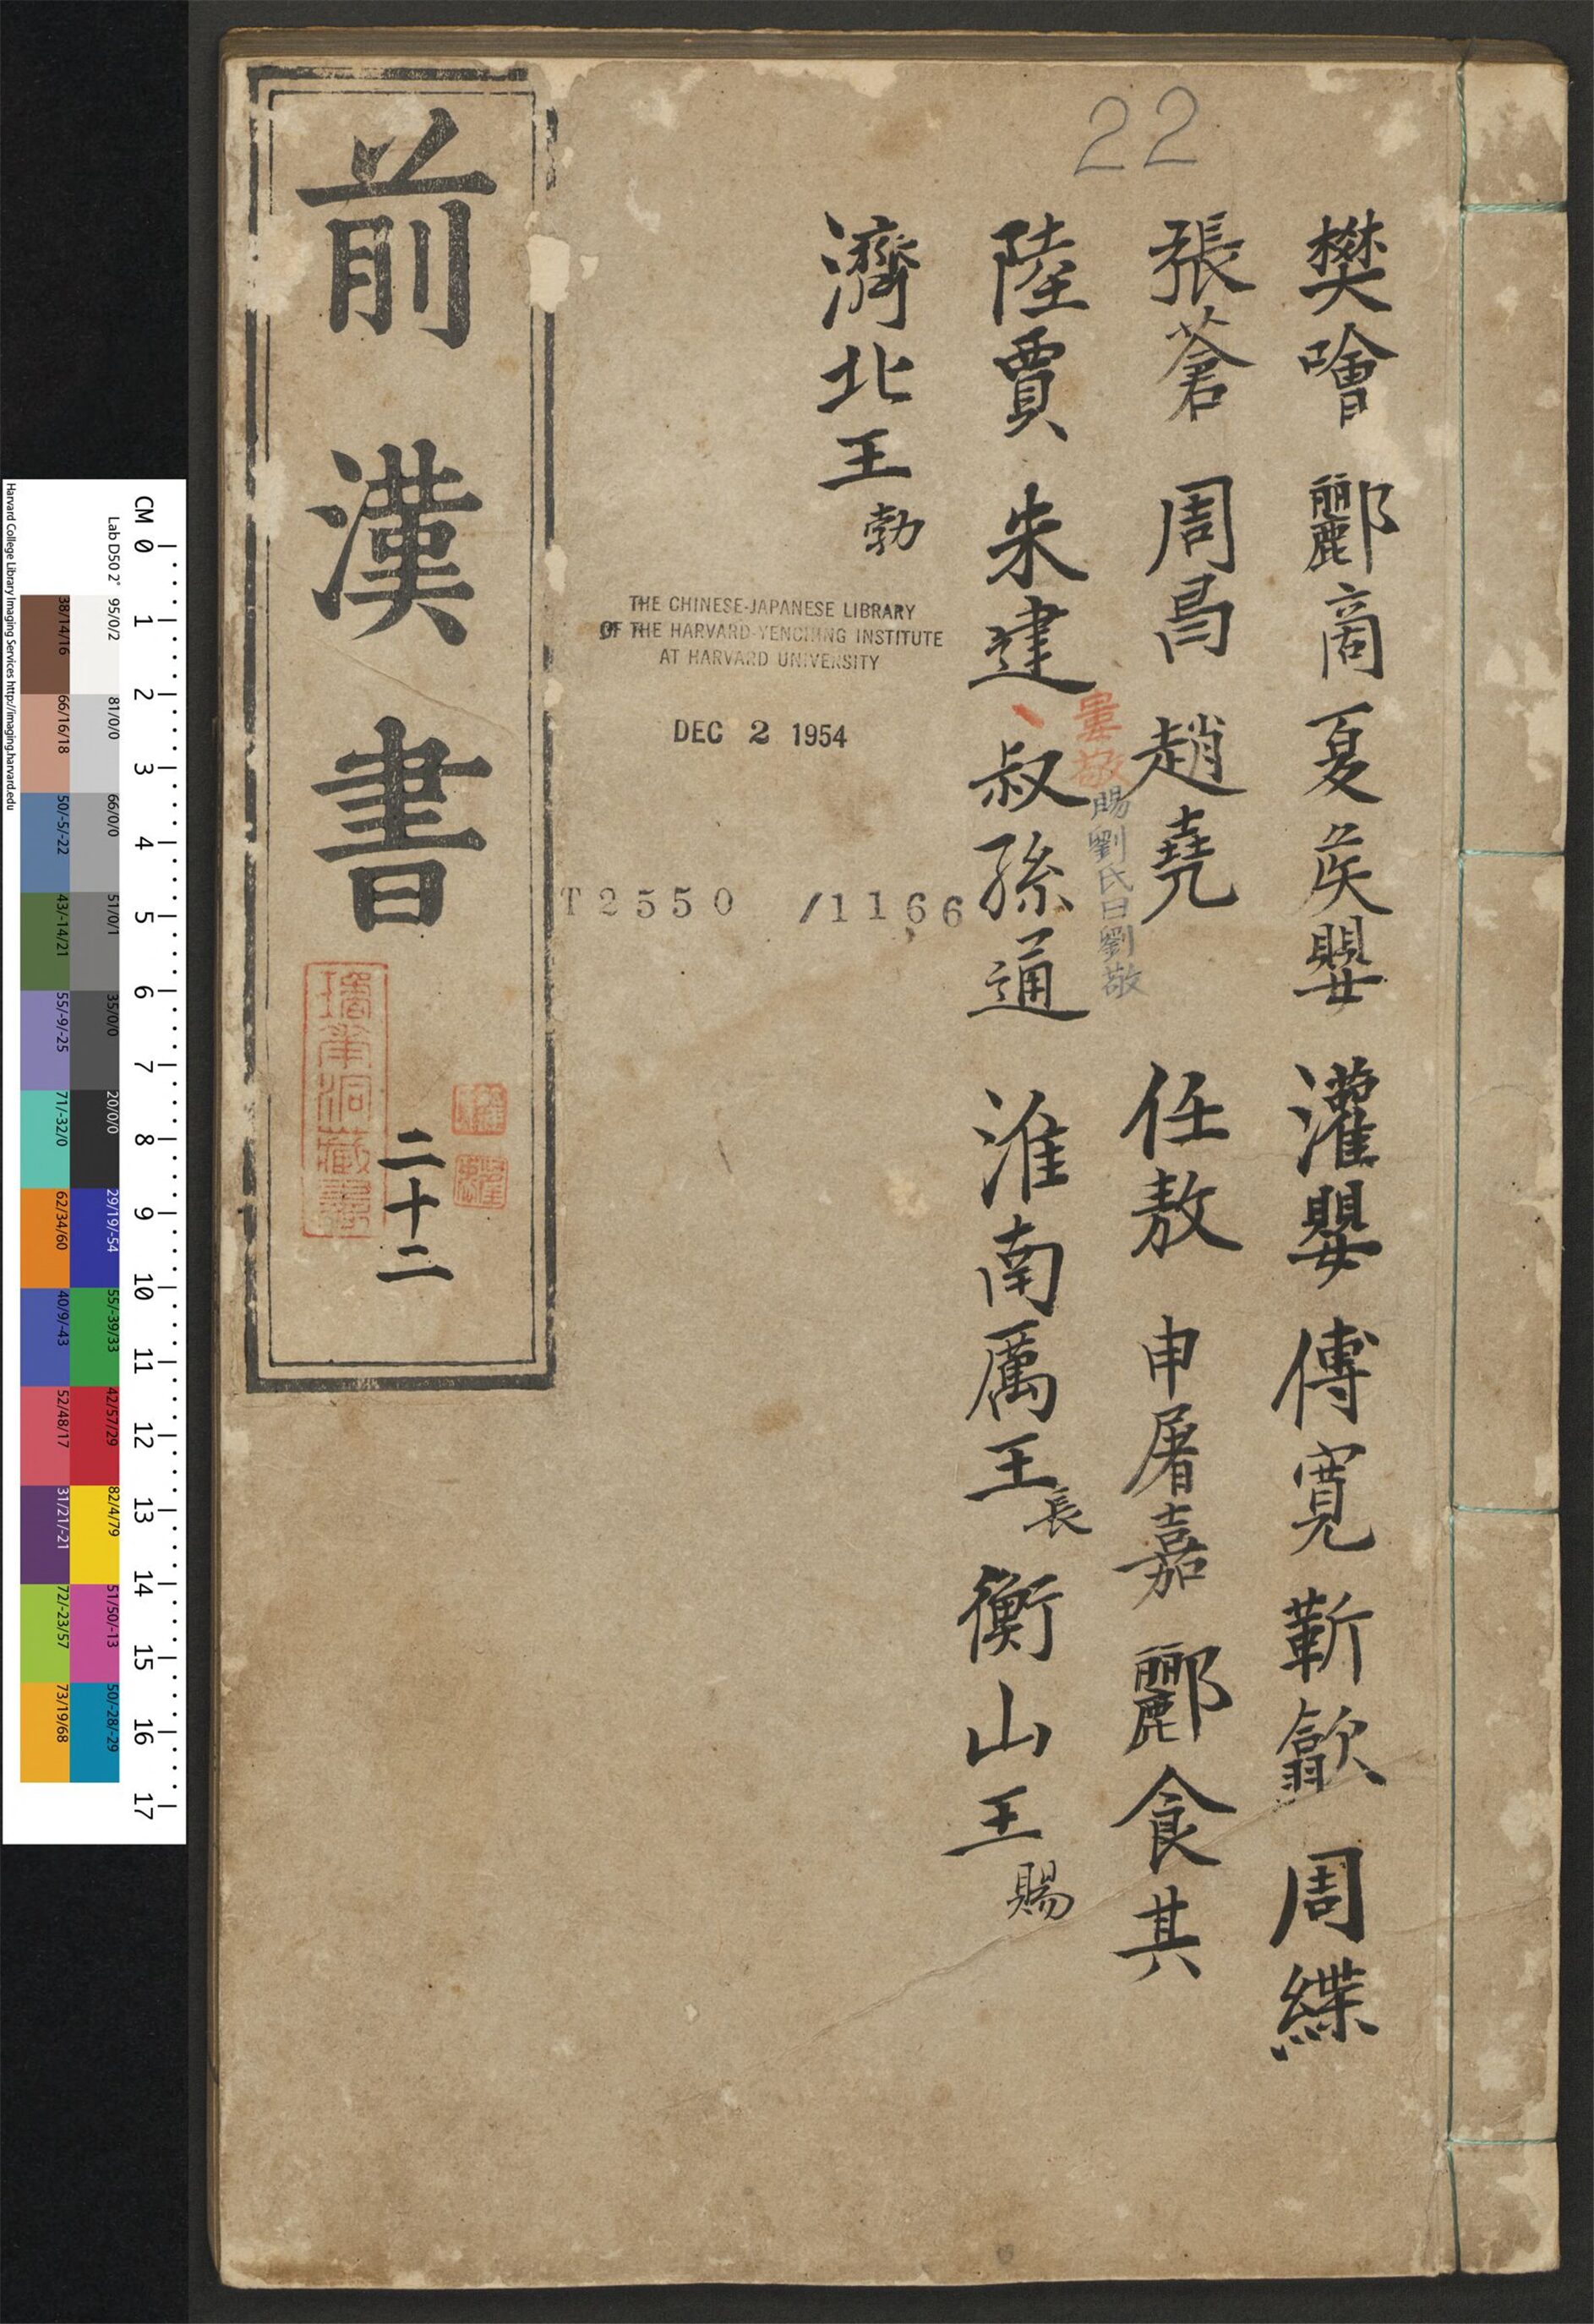 22
樊噲 酈商 夏侯嬰 灌嬰 傅寬 靳歙 周緤
張蒼 周昌 趙堯 任敖 申屠嘉 酈食其
婁敬 賜劉氏曰劉敬
陸賈 朱建、叔孫通 淮南厲王長 衡山王賜
濟北王勃
THE CHINESE-JAPANESE LIBRARY
OF THE HARVARD-YENCHING INSTITUTE
AT HARVARD UNIVERSITY
DEC 2 1954
T2550 /1166
前漢書
二十二
CM 0 1 2 3 4 5 6 7 8 9 10 11 12 13 14 15 16 17
Lab D50 2° 95/0/2 81/0/0 66/0/0 51/0/1 35/0/0 20/0/0 29/19/-54 55/-39/33 42/57/29 82/4/79 51/50/-13 50/-28/-29
38/14/16 66/16/18 50/-5/-22 43/-14/21 55/-9/-25 71/-32/0 62/34/60 40/9/-43 52/48/17 31/21/-21 72/-23/57 73/19/68
Harvard College Library Imaging Services http://imaging.harvard.edu